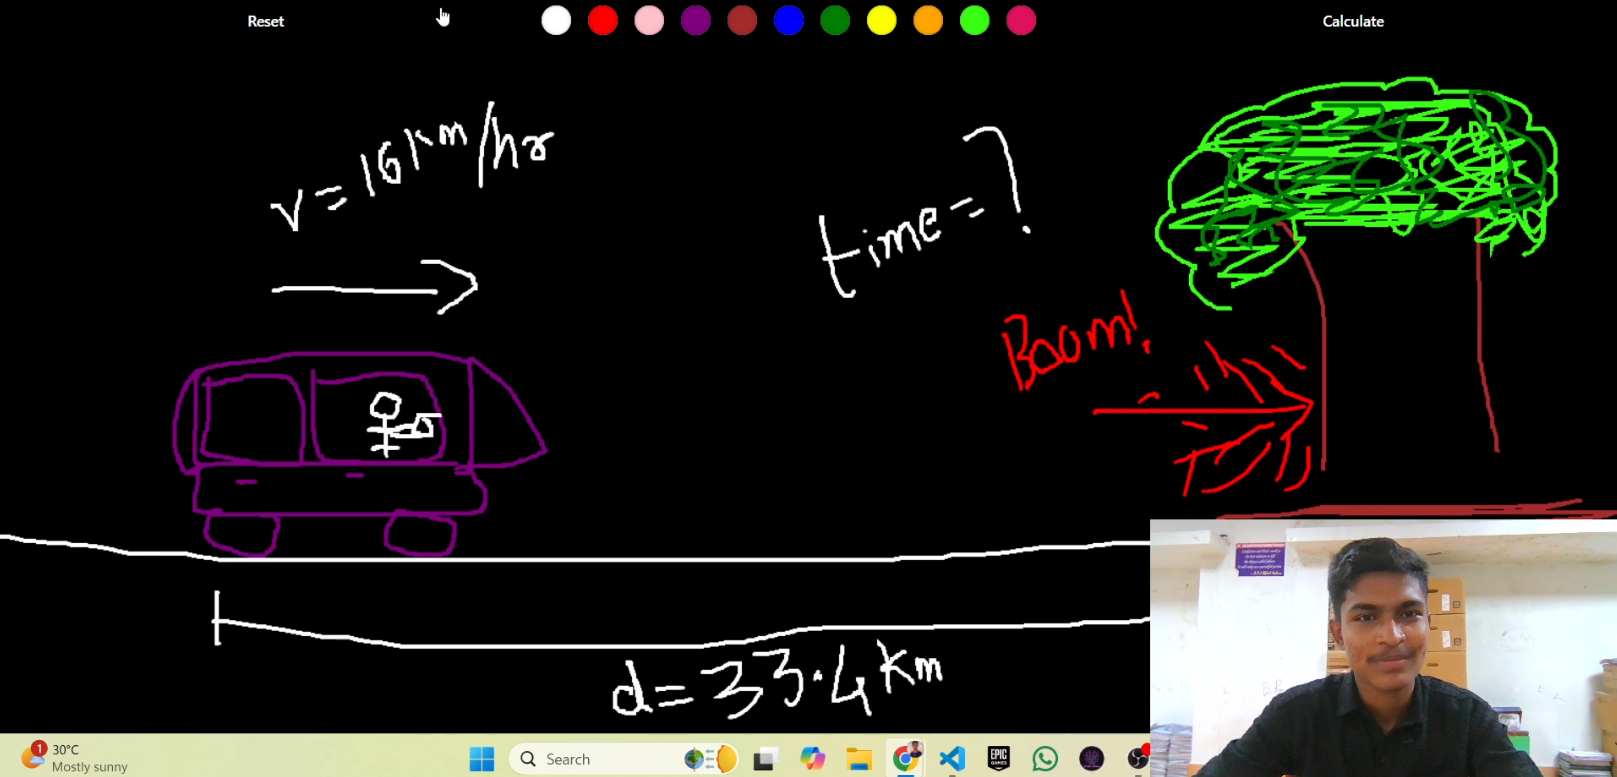 Reset
Calculate
v = 16 km/hr
time = ?
Boom!
d = 33.4 km
1
30°C
Mostly sunny
Search
EPIC
GAMES